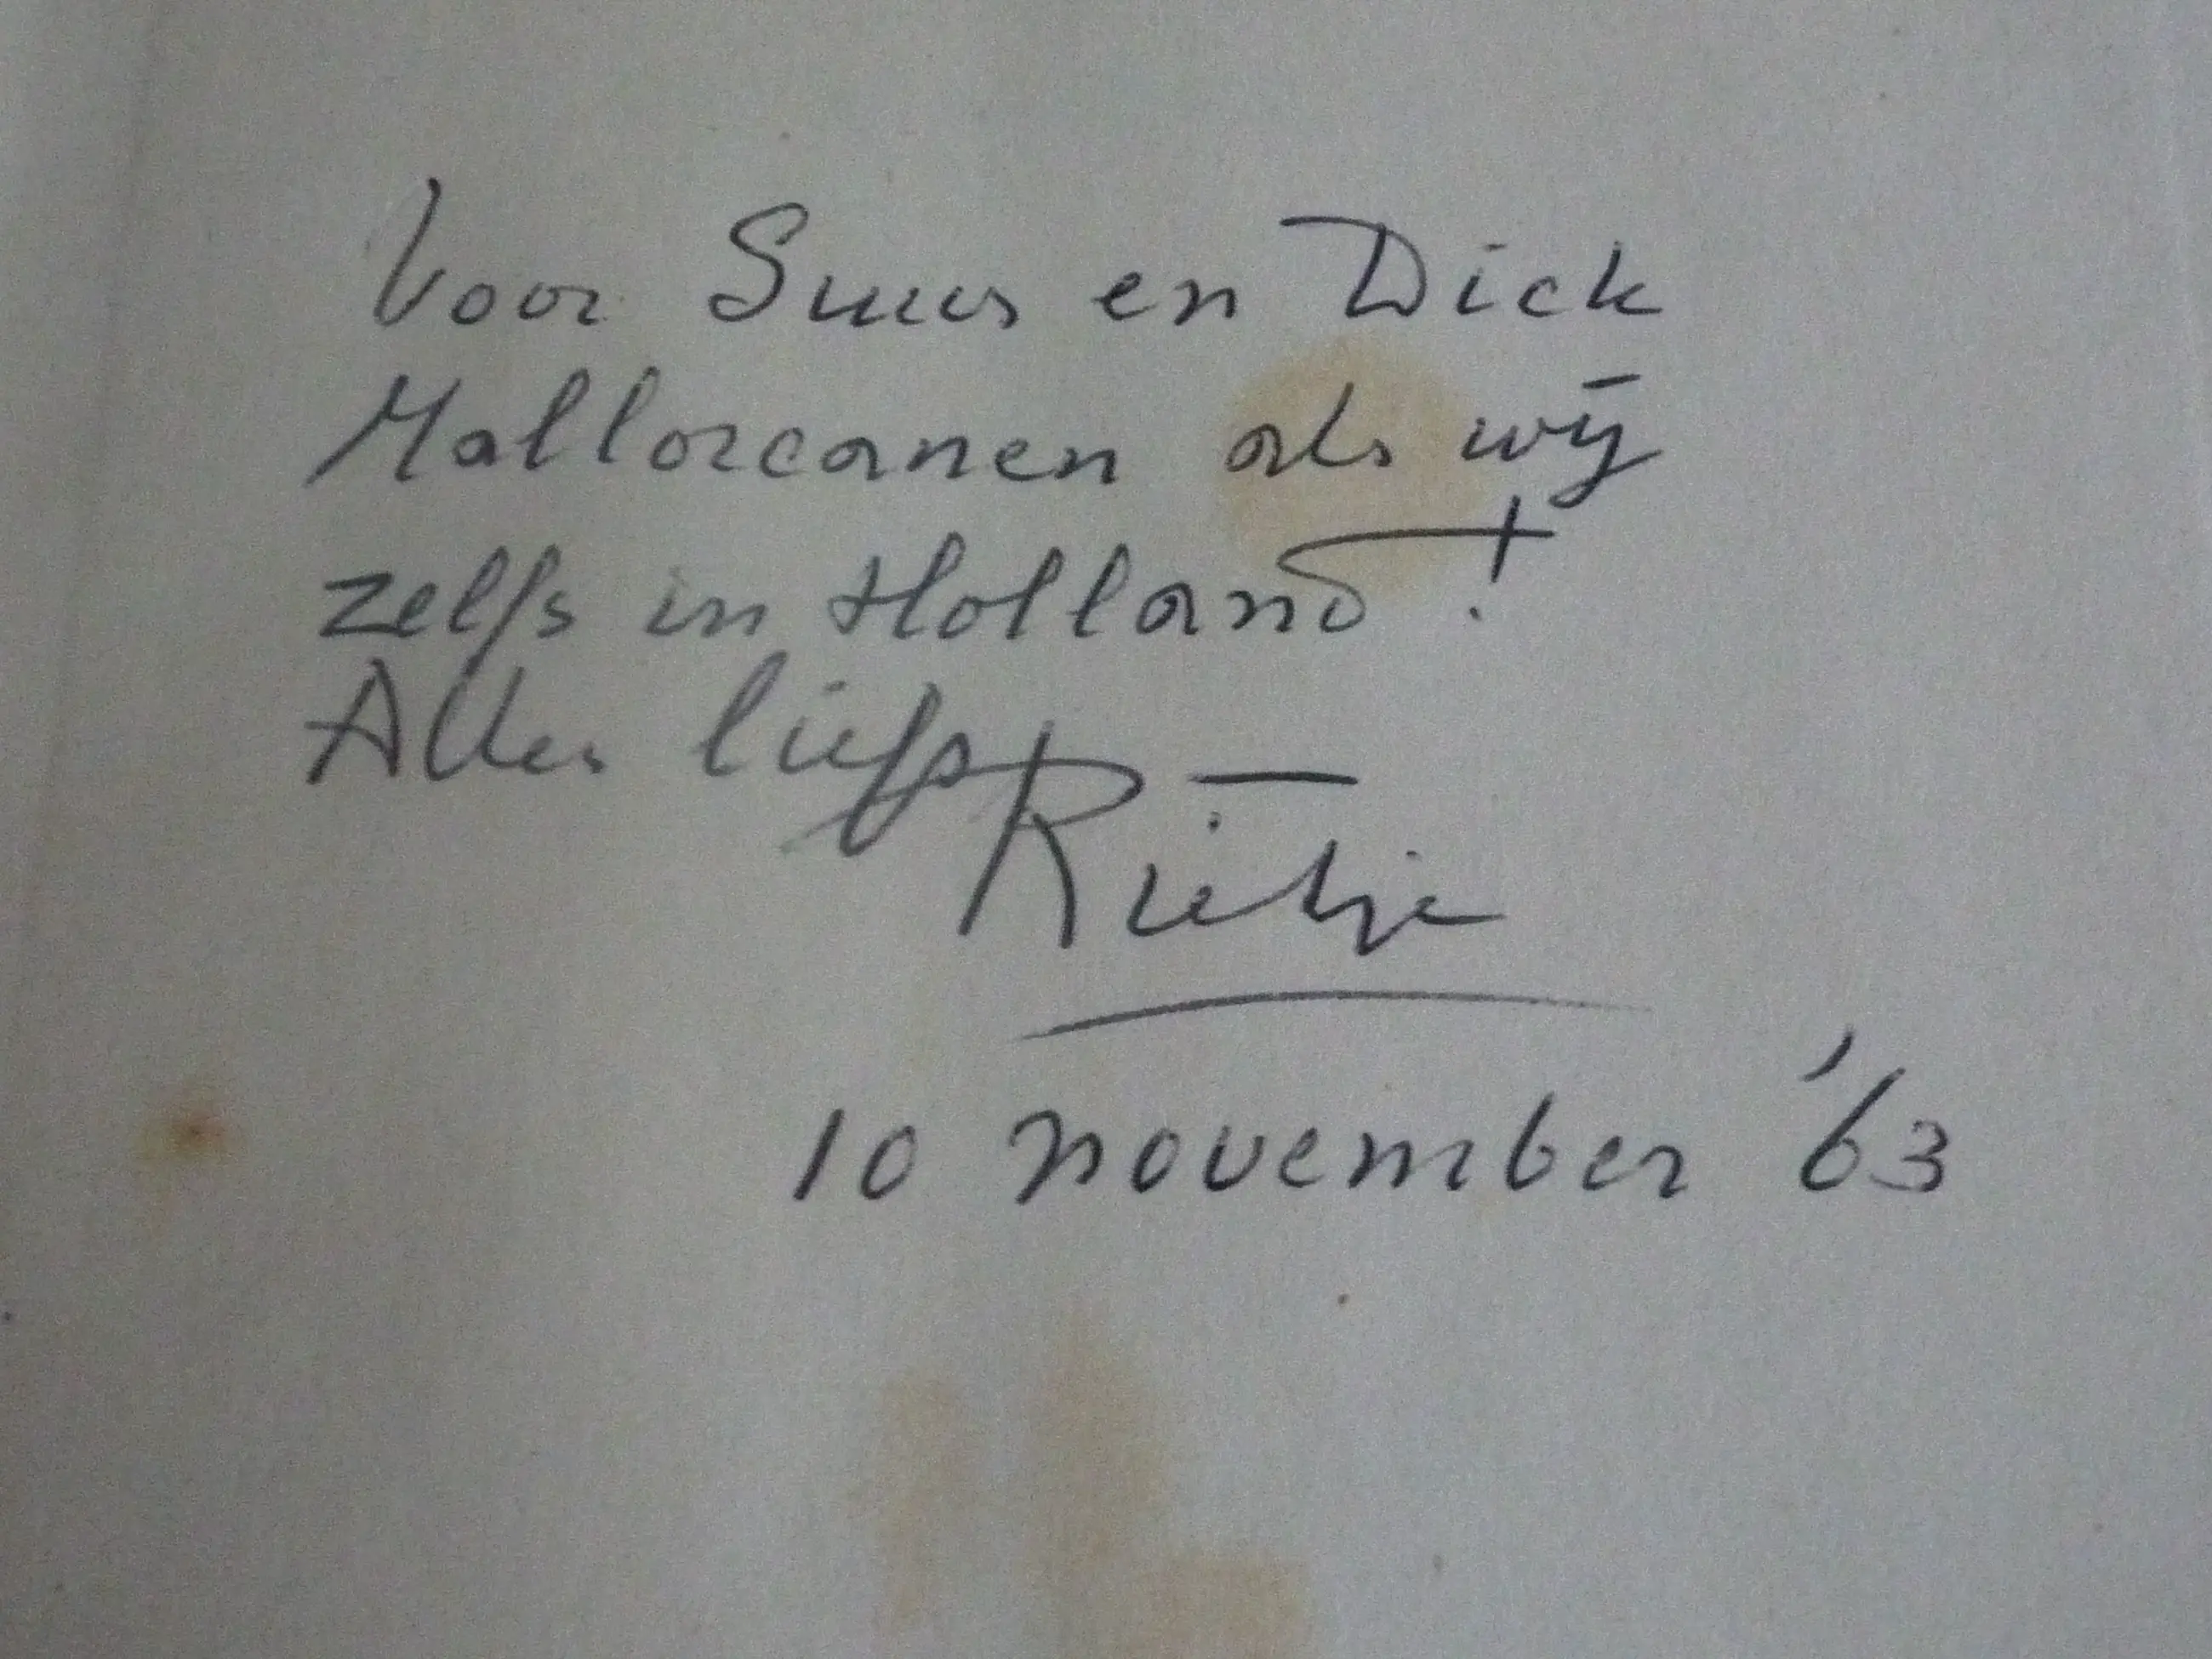 Voor Suus en Dick
Mallorcanen als wij
zelfs in Holland!
Alles liefs
Rietje
10 november '63